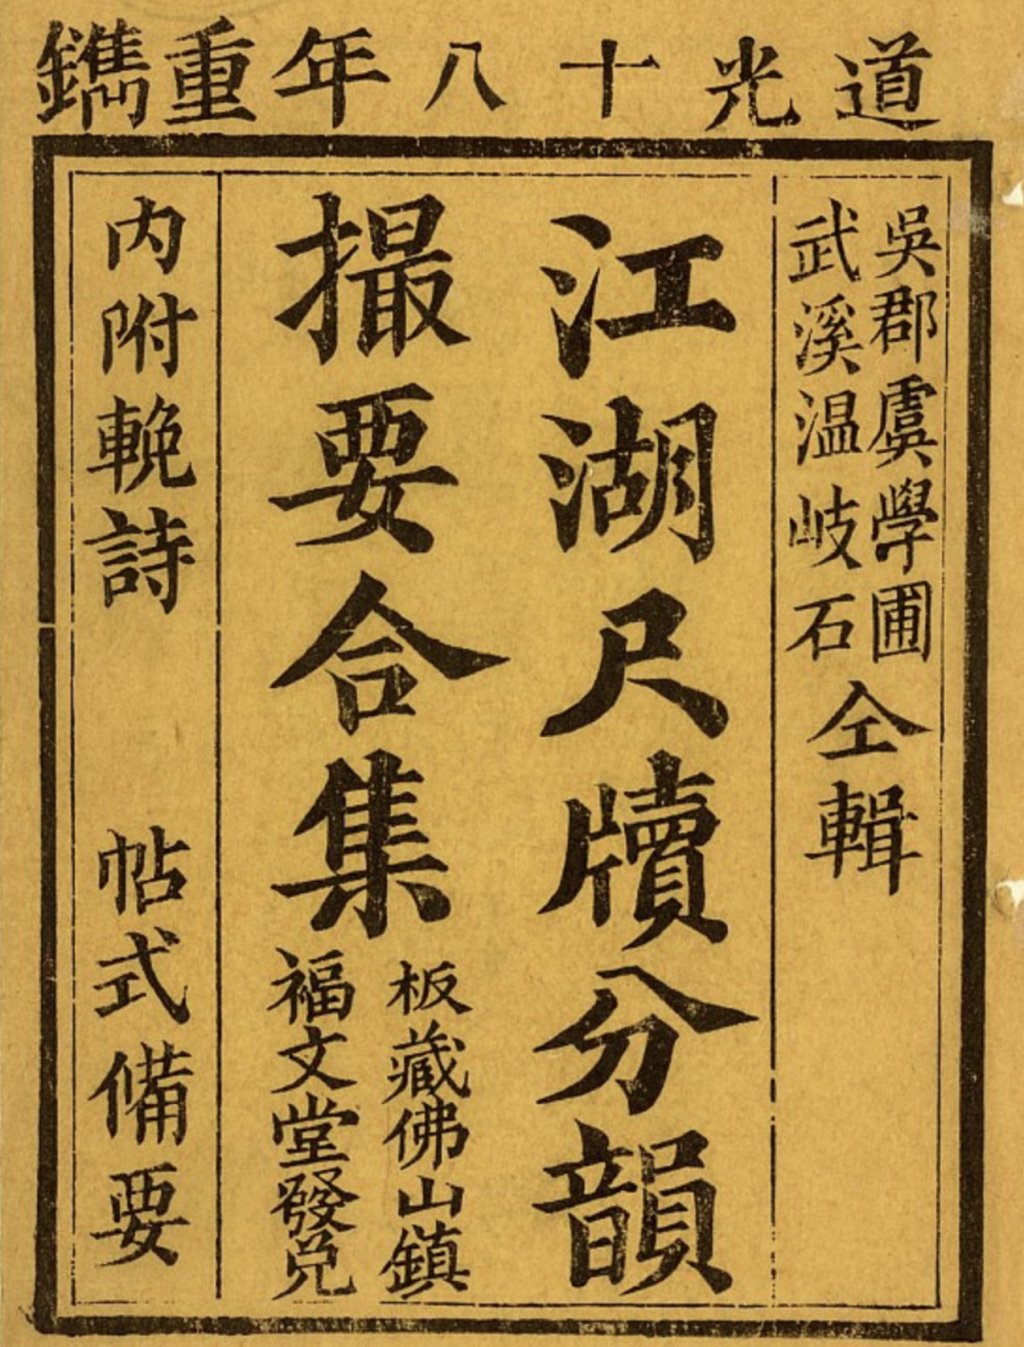 道光十八年重鐫
吳郡虞學圃
武溪温岐石
仝輯
江湖尺牘分韻
撮要合集
板藏佛山鎮
福文堂發兑
内附輓詩
帖式備要